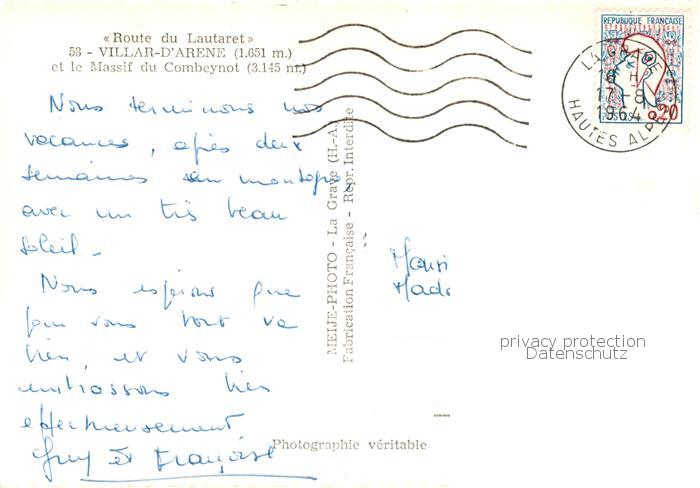 «Route du Lautaret»
58 - VILLAR-D'ARENE (1.651 m.)
et le Massif du Combeynot (3.145 m.)
Nous terminons nos
vacances, après deux
semaines en montagne,
avec un très beau
soleil.
Nous espérons que
pour vous tout va
bien, et vous
embrassons bien
affectueusement
Guy et Françoise
MEIJE-PHOTO - La Grave (H.-A.)
Fabrication Française - Repr. Interdite
Photographie véritable
REPUBLIQUE FRANÇAISE
0,20
POSTES
LA GRAVE
18 H
17-8
1964
HAUTES ALPES
privacy protection
Datenschutz